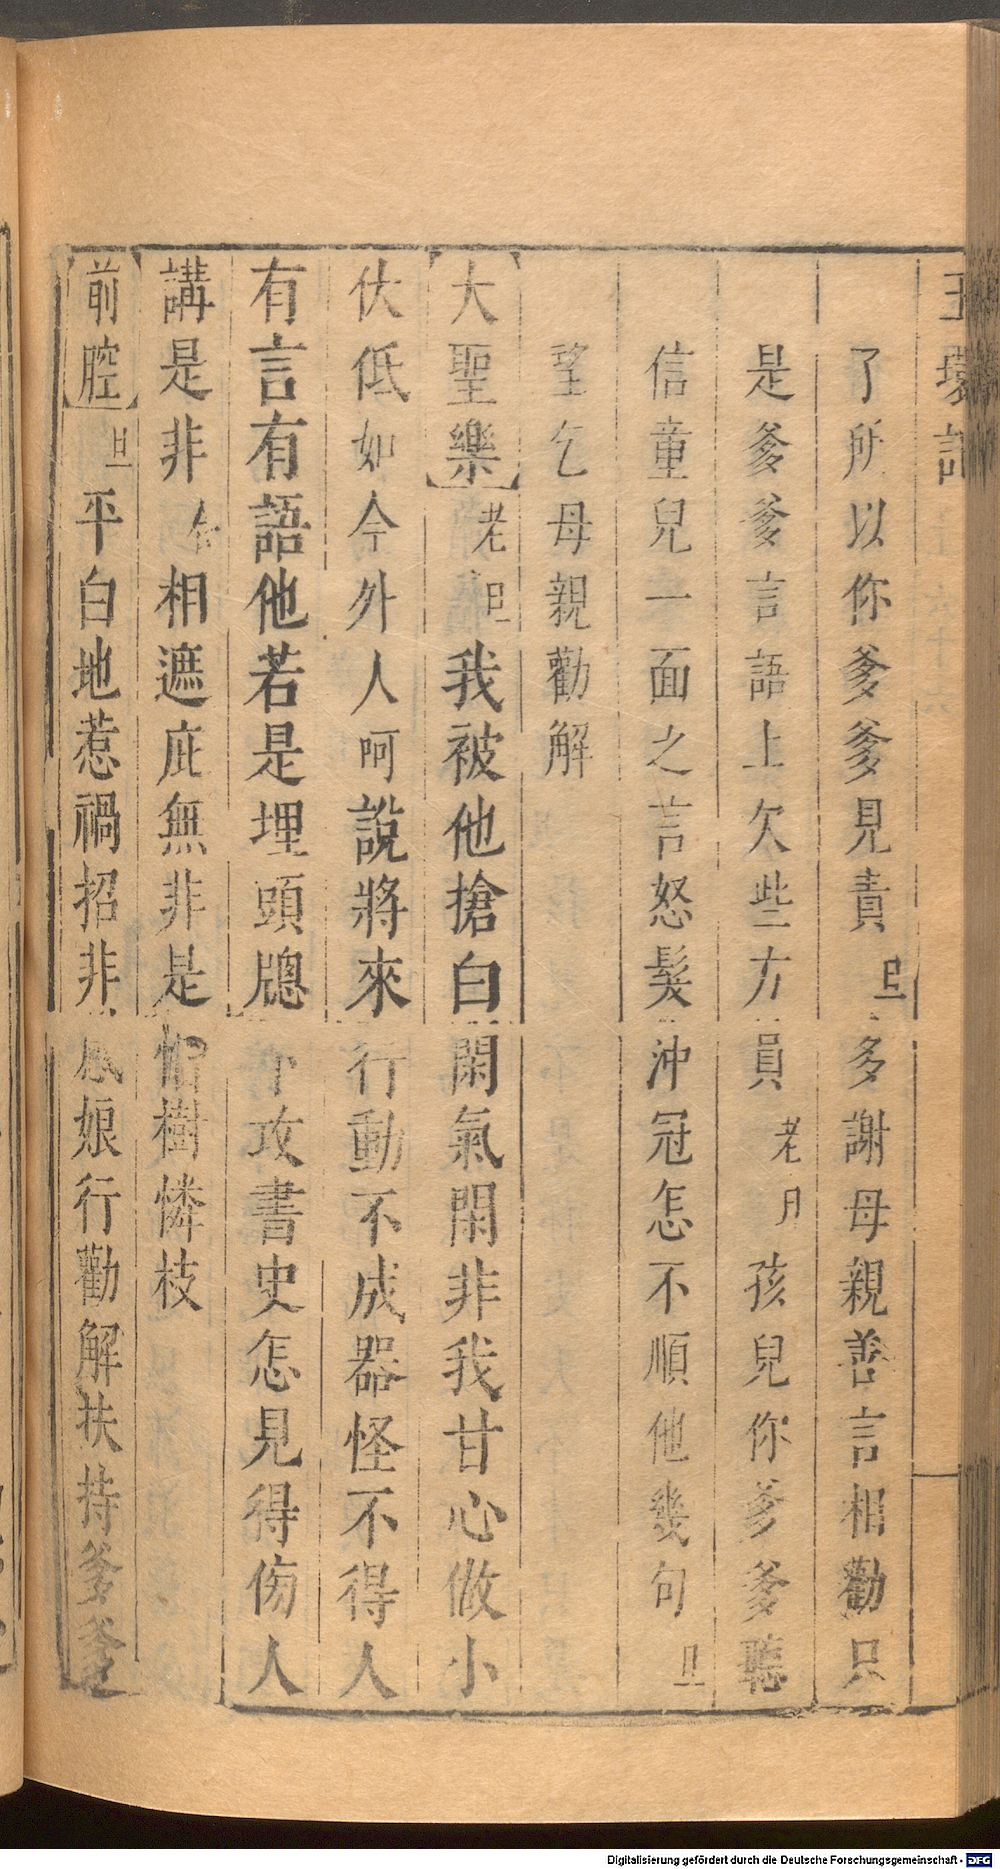 玉環記
了所以你爹爹見責旦多謝母親善言相勸只
是爹爹言語上欠些方員老旦孩兒你爹爹聽
信童兒一面之言怒髮沖冠怎不順他幾句旦
望乞母親勸解
大聖樂老旦我被他搶白閑氣閑非我甘心做小
伏低如今外人呵說將來行動不成器怪不得人
有言有語他若是埋頭牕下攻書史怎見得傷人
講是非合相遮庇無非是惜樹憐枝
前腔旦平白地惹禍招非娘行勸解扶持爹爹
Digitalisierung gefördert durch die Deutsche Forschungsgemeinschaft - DFG